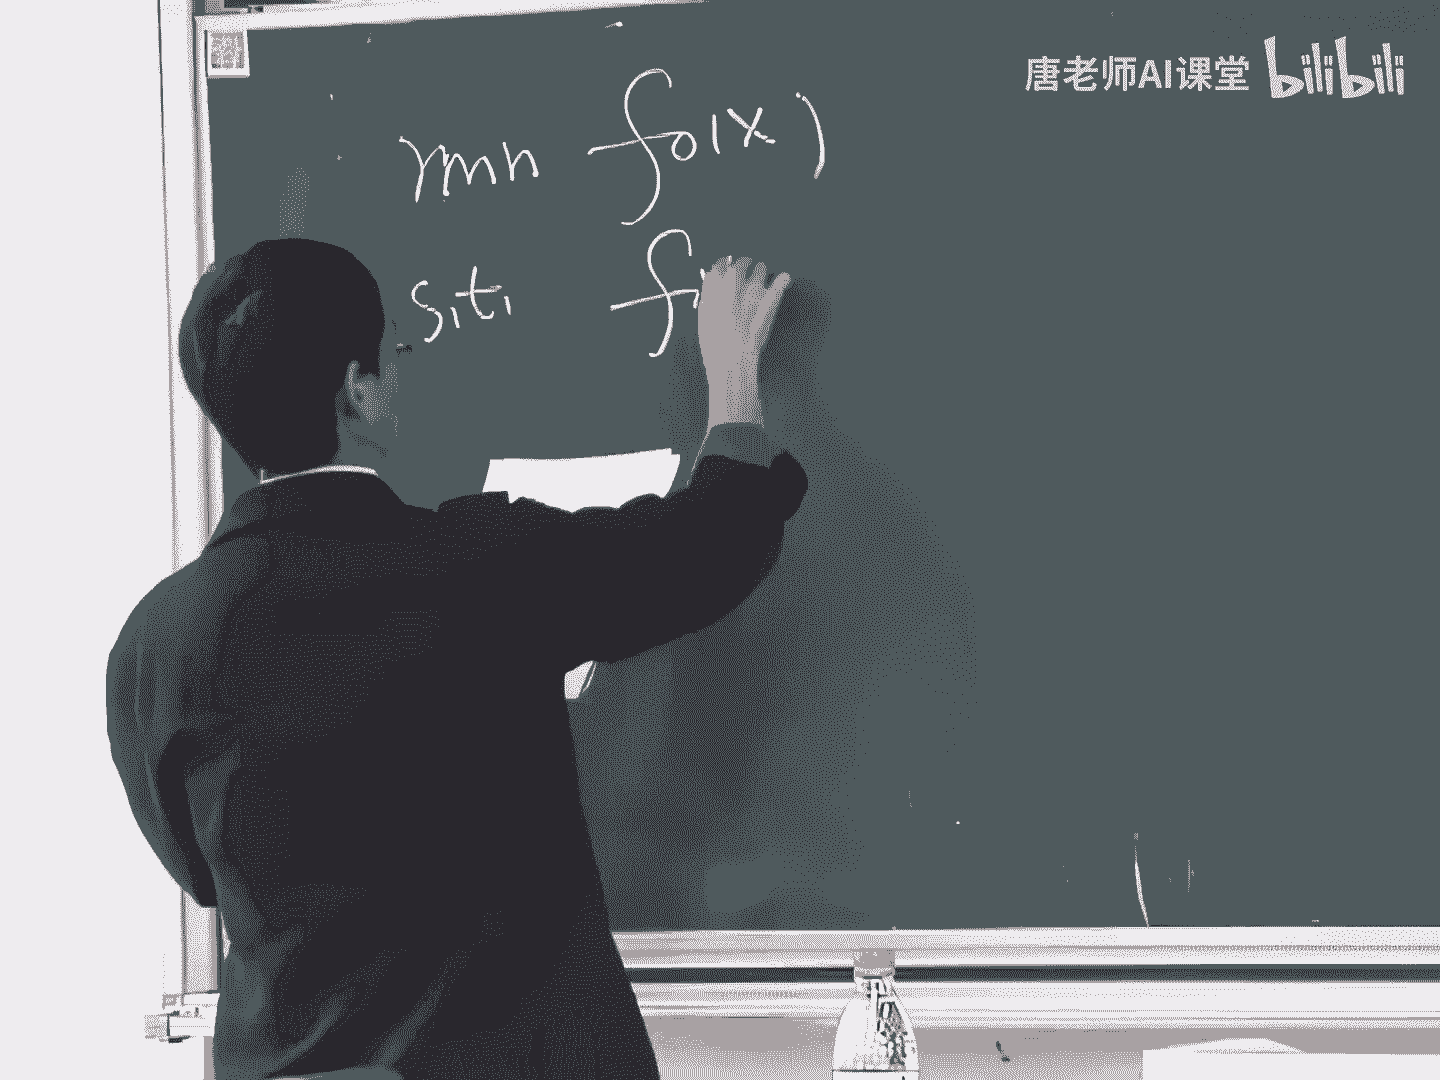 唐老师AI课堂 bilibili
min f₀(x)
s.t. fᵢ